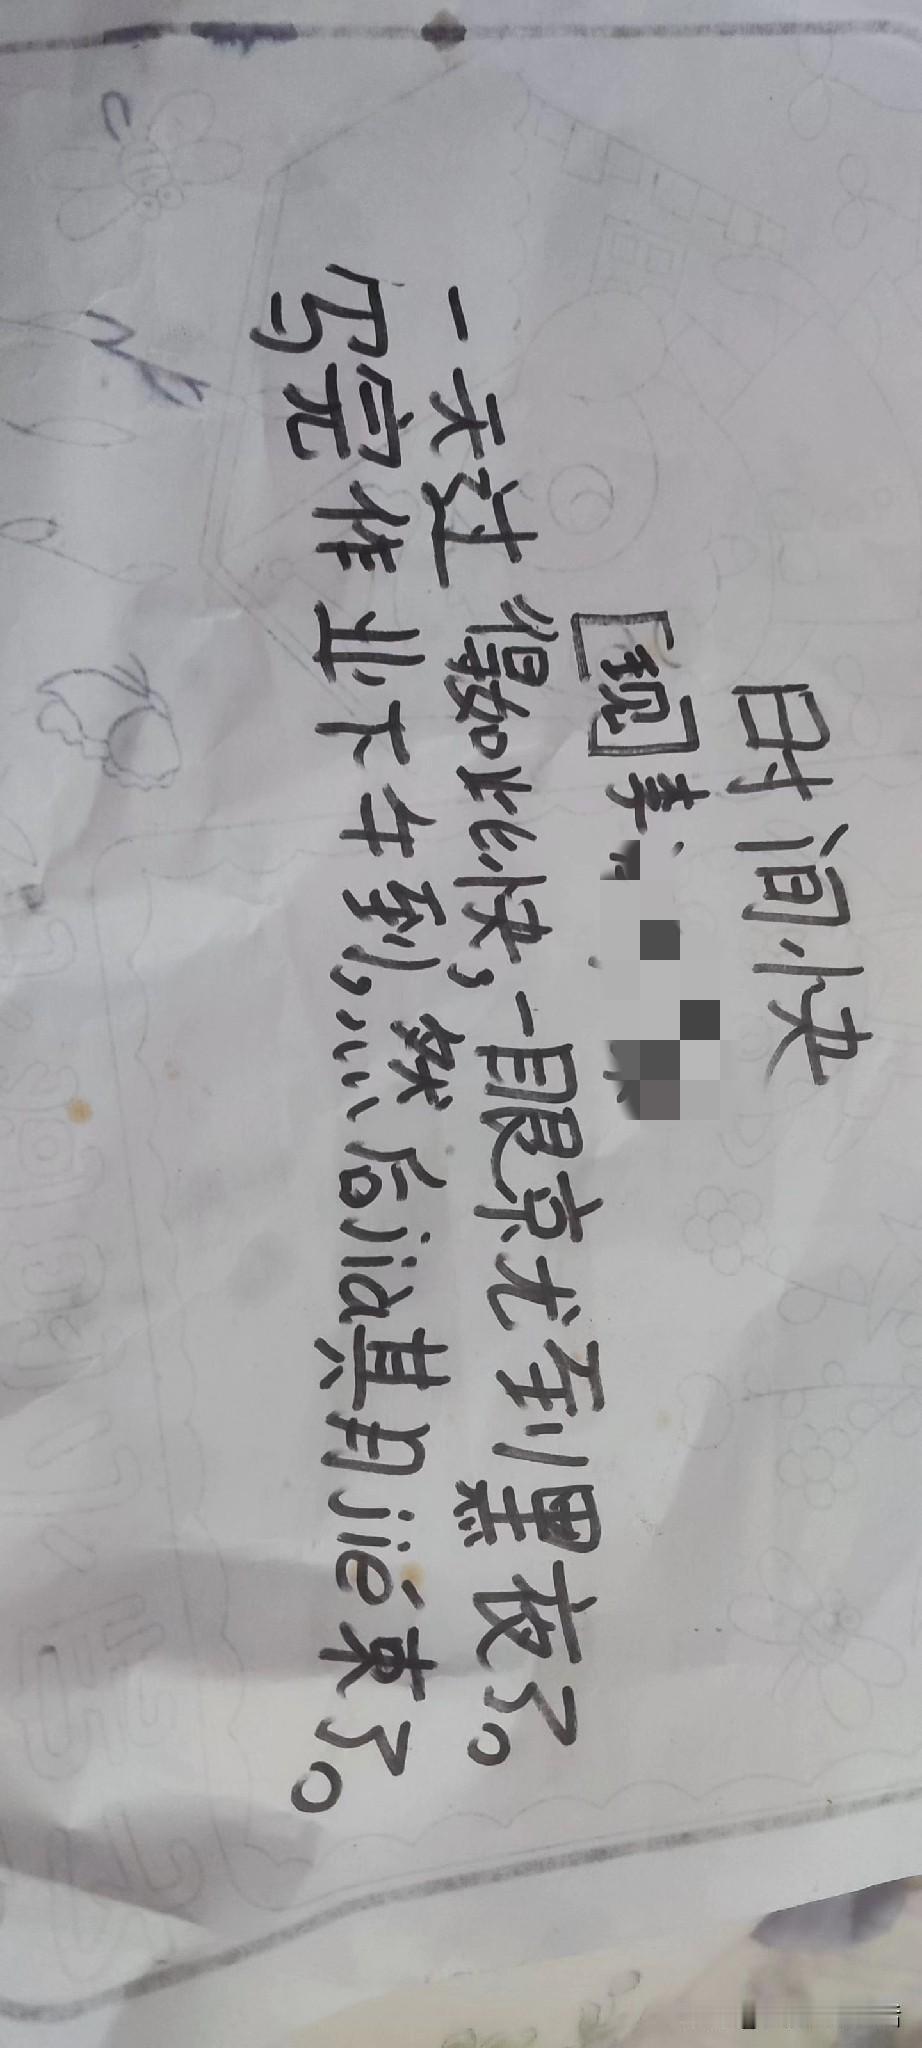 时间快
[现]
一天过得如此快，一眼京尤到黑夜了。
写完作业下午到，然后jia其月jié来了。